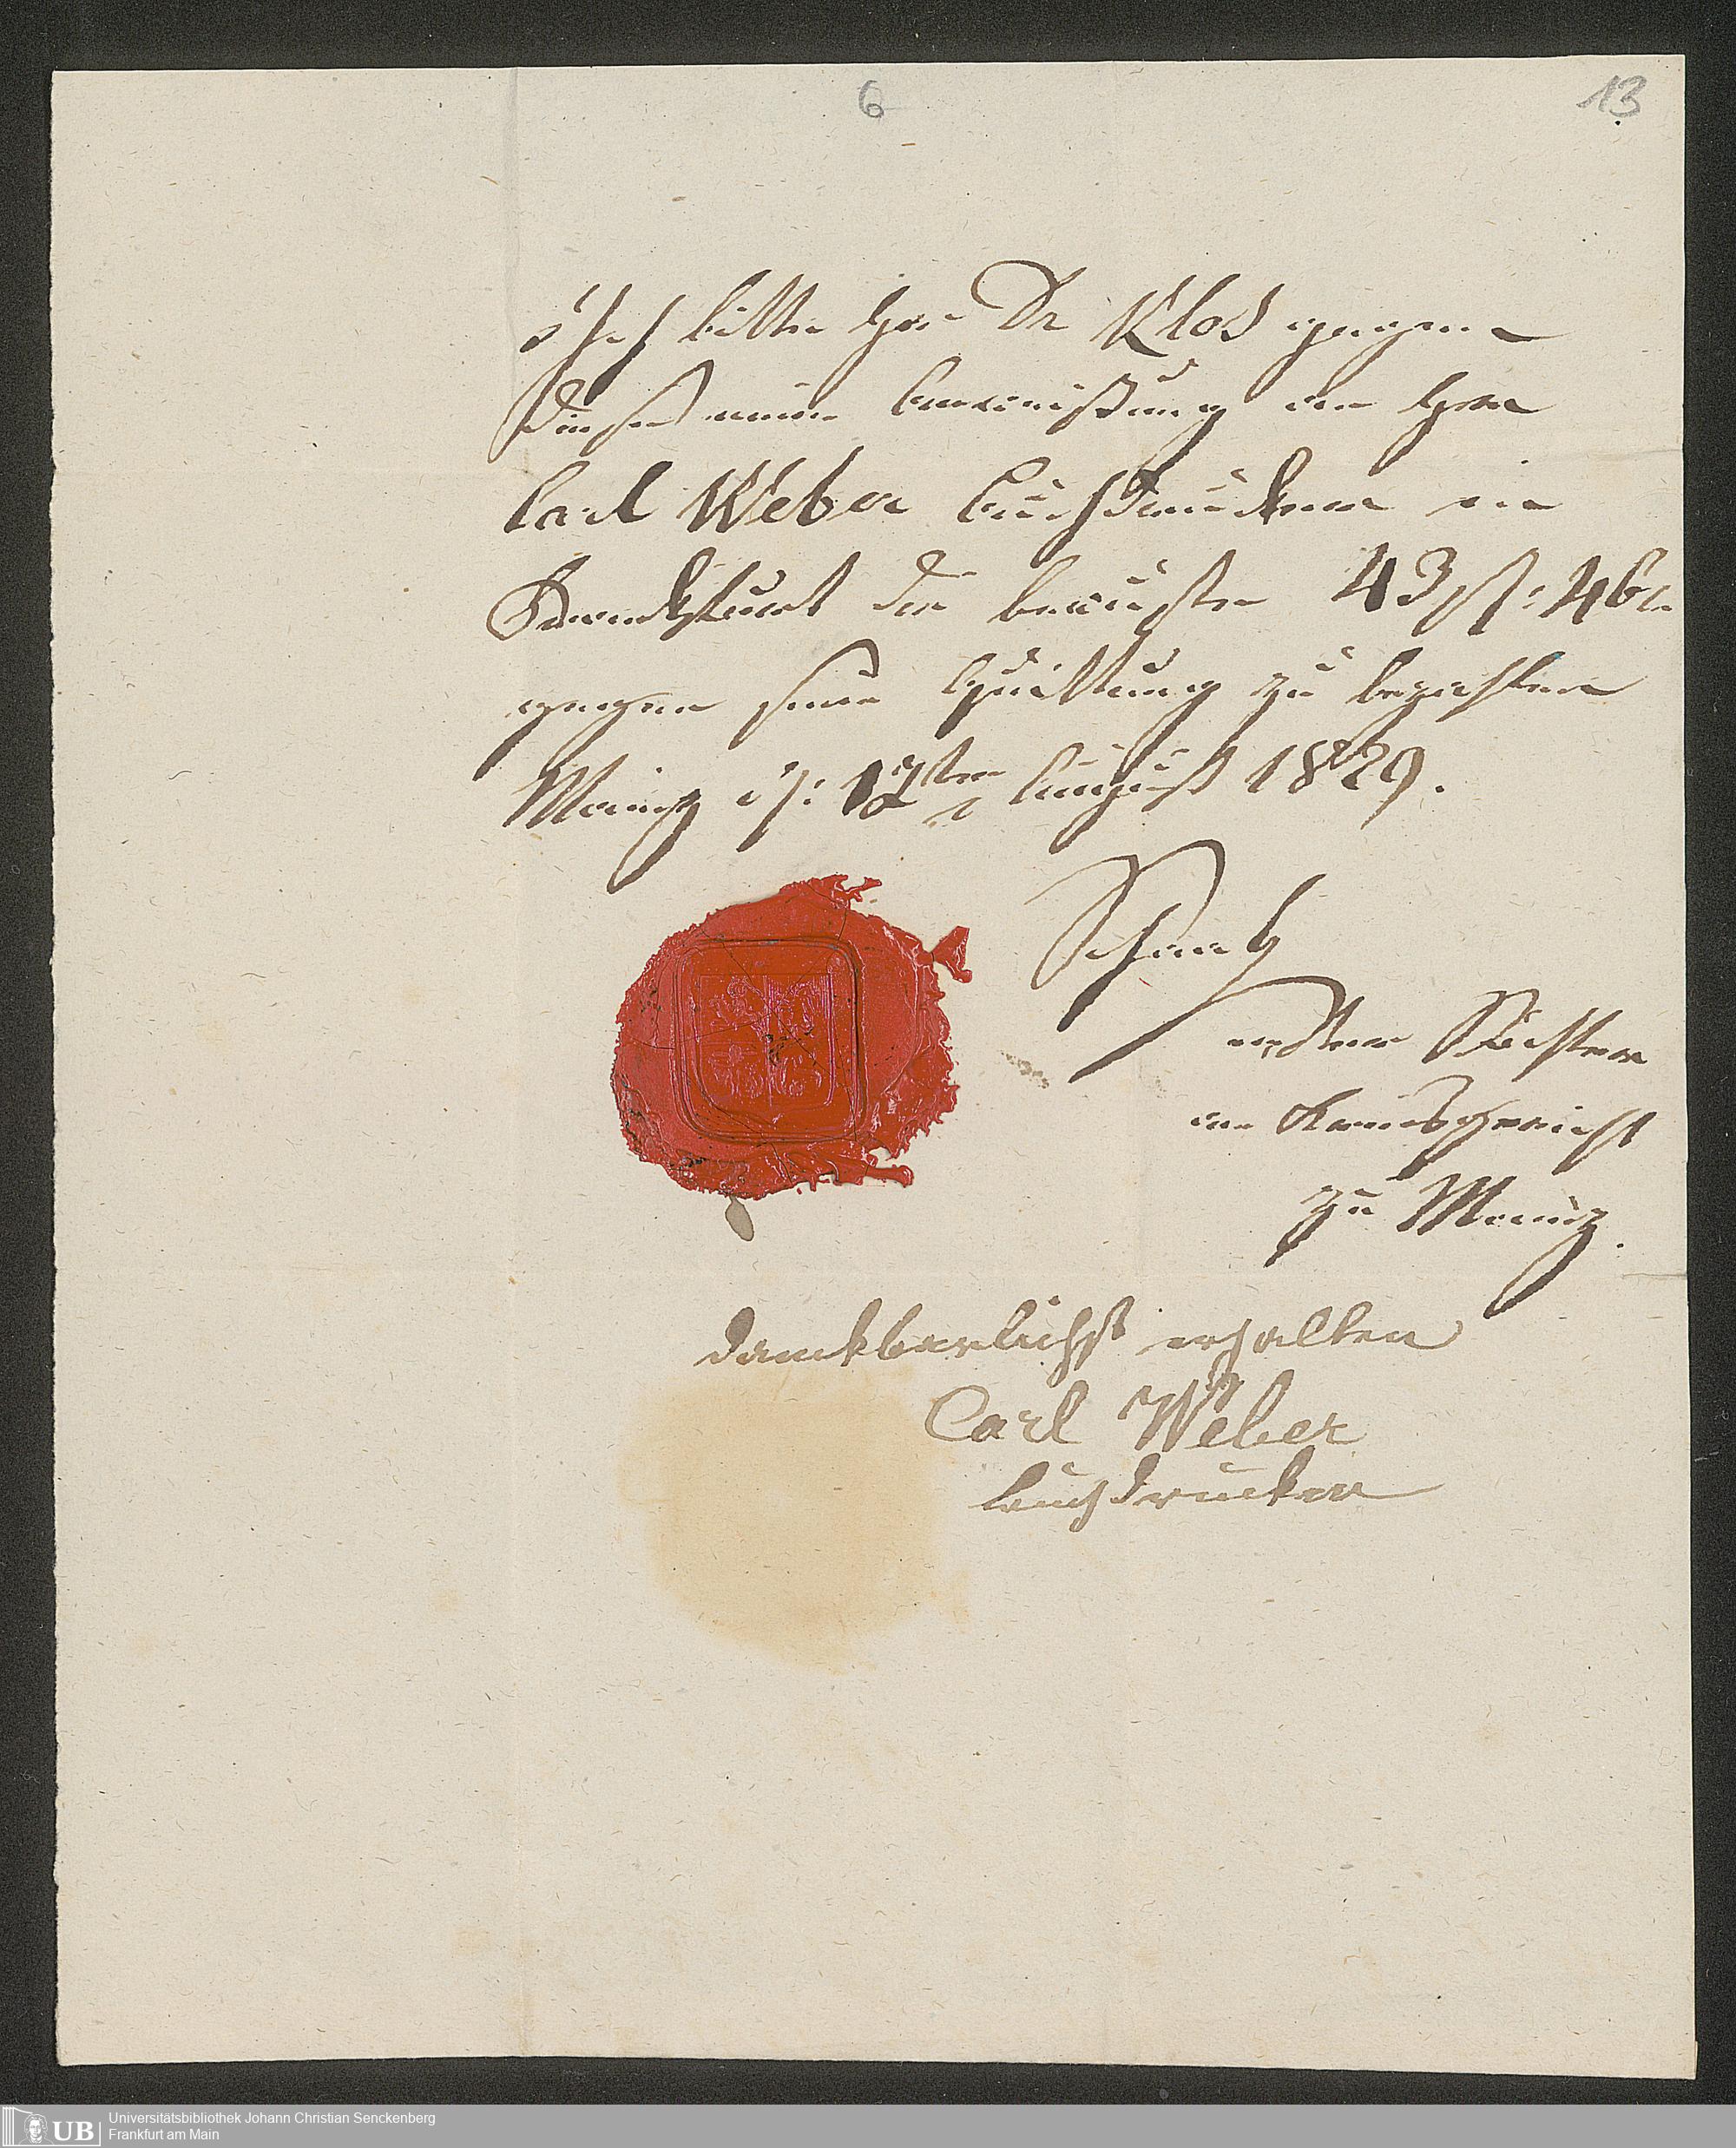 6
13
Ich bitte Hrn Dr Klos gegen
diese meine Anweißung an Hrn
Carl Weber Buchdrucker in
Frankfurt die bewusten 43 fl: 46
gegen seine Quittung zu bezahlen
Mainz d: 12ten August 1829.
Schaab
erster Richter
am Kreisgericht
zu Mainz.
danckbarlichst erhalten
Carl Weber
buchdrucker
UB
Universitätsbibliothek Johann Christian Senckenberg
Frankfurt am Main